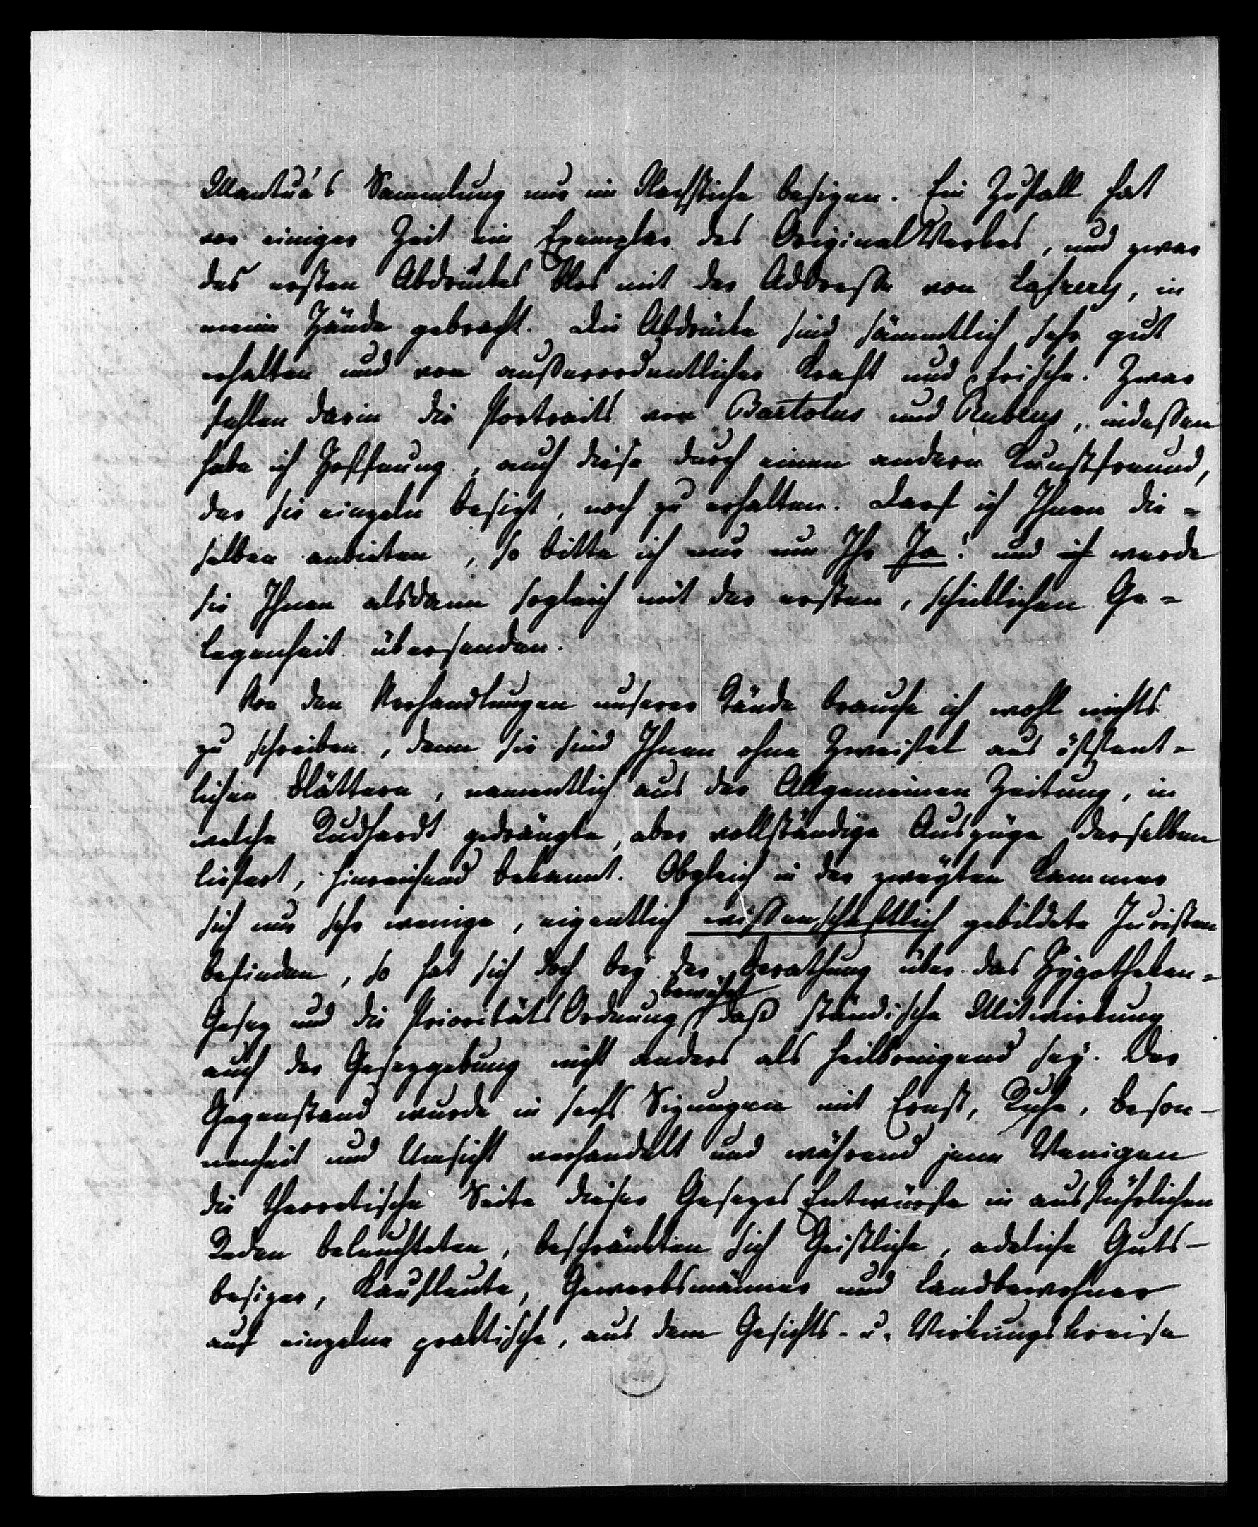 Mantua's Sammlung nur im Nachstiche besizen. Ein Zufall hat
vor einiger Zeit ein Exemplar des OriginalWerkes, und zwar
des ersten Abdruckes blos mit der Addresse von Lafrery, in
meine Hände gebracht. Die Abdrücke sind sämmtlich sehr gut
erhalten und von außerordentlicher Kraft und Frische. Zwar
fehlen darin die Portraits von Bartolus und Rubeus, indessen
habe ich Hoffnung, auch diese durch einen andern Kunstfreund,
der sie einzeln besizt, noch zu erhalten. Darf ich Ihnen die-
selben anbieten, so bitte ich nur um Ihr Ja! und ich werde
sie Ihnen alsdann sogleich mit der ersten, schicklichen Ge-
legenheit übersenden.
Von den Verhandlungen unserer Stände brauche ich wohl nichts
zu schreiben, denn sie sind Ihnen ohne Zweifel aus öffent-
lichen Blättern, namentlich aus der Allgemeinen Zeitung, in
welche Rudhardt gedrängte, aber vollständige Auszüge derselben
liefert, hinreichend bekannt. Obgleich in der zweyten Kammer
sich nur sehr wenige, eigentlich wissenschaftlich gebildete Juristen
befinden, so hat sich doch bey der Berathung über das Hypotheken-
Gesez und die PrioritätsOrdnung bewährt daß ständische Mitwirkung
auch der Gesezgebung nicht anders als heilbringend sey. Der
Gegenstand wurde in sechs Sizungen mit Ernst, Ruhe, Beson-
nenheit und Umsicht verhandelt und während jene Wenigen
die theoretische Seite dieser Gesezes Entwürfe in ausführlichen
Reden beleuchteten, beschränkten sich Geistliche, adeliche Guts-
besizer, Kaufleute, Gewerbsmänner und Landbewohner
auf einzelne praktische, aus dem Gesichts- u. Wirkungskreise